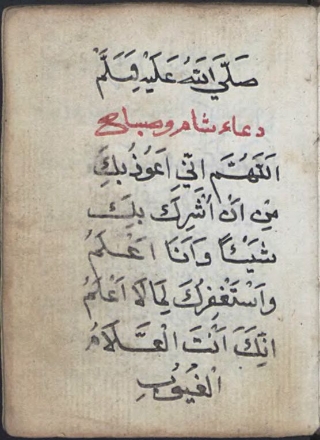 صَلَّى اللهُ عَلَيْهِ وَسَلَّمْ
دعاء شام و صباح
اَللّٰهُمَّ اِنّى اَعُوذُ بِكَ
مِنْ اَنْ اُشْرِكَ بِكَ
شَيْئًا وَاَنَا اَعْلَمُ
وَاَسْتَغْفِرُكَ لِمَا لَا اَعْلَمُ
اِنَّكَ اَنْتَ الْعَلَّامُ
الْغُيُوبِ